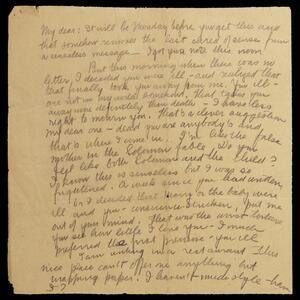 My dear: It will be Monday before you get this and
that somehow removes the last shred of sense from
a senseless message — I got your note this noon
But this morning when there was no
letter, I decided you were ill — and realized that
that finally took you away from me. You ill —
are not in my world somehow. That takes you
away more definitely than death — I have less
right to mourn you. That's a clever suggestion
my dear one — dead you are anybody's and
that's where I come in. I'm like the false
mother in the Solomon fable. Do you
kept like both Solomon and the child?
I know this is senseless but I was so
frightened. A week since you had written
or I decided that Harry or the baby were
ill and you — conscience-stricken, put me
out of your mind. That was the worst torture
You see how little I love you — I much
preferred the first premise — you ill
I am writing in a restaurant. This
nice place can't offer me anything but
wrapping paper. I haven't much style — have
I?